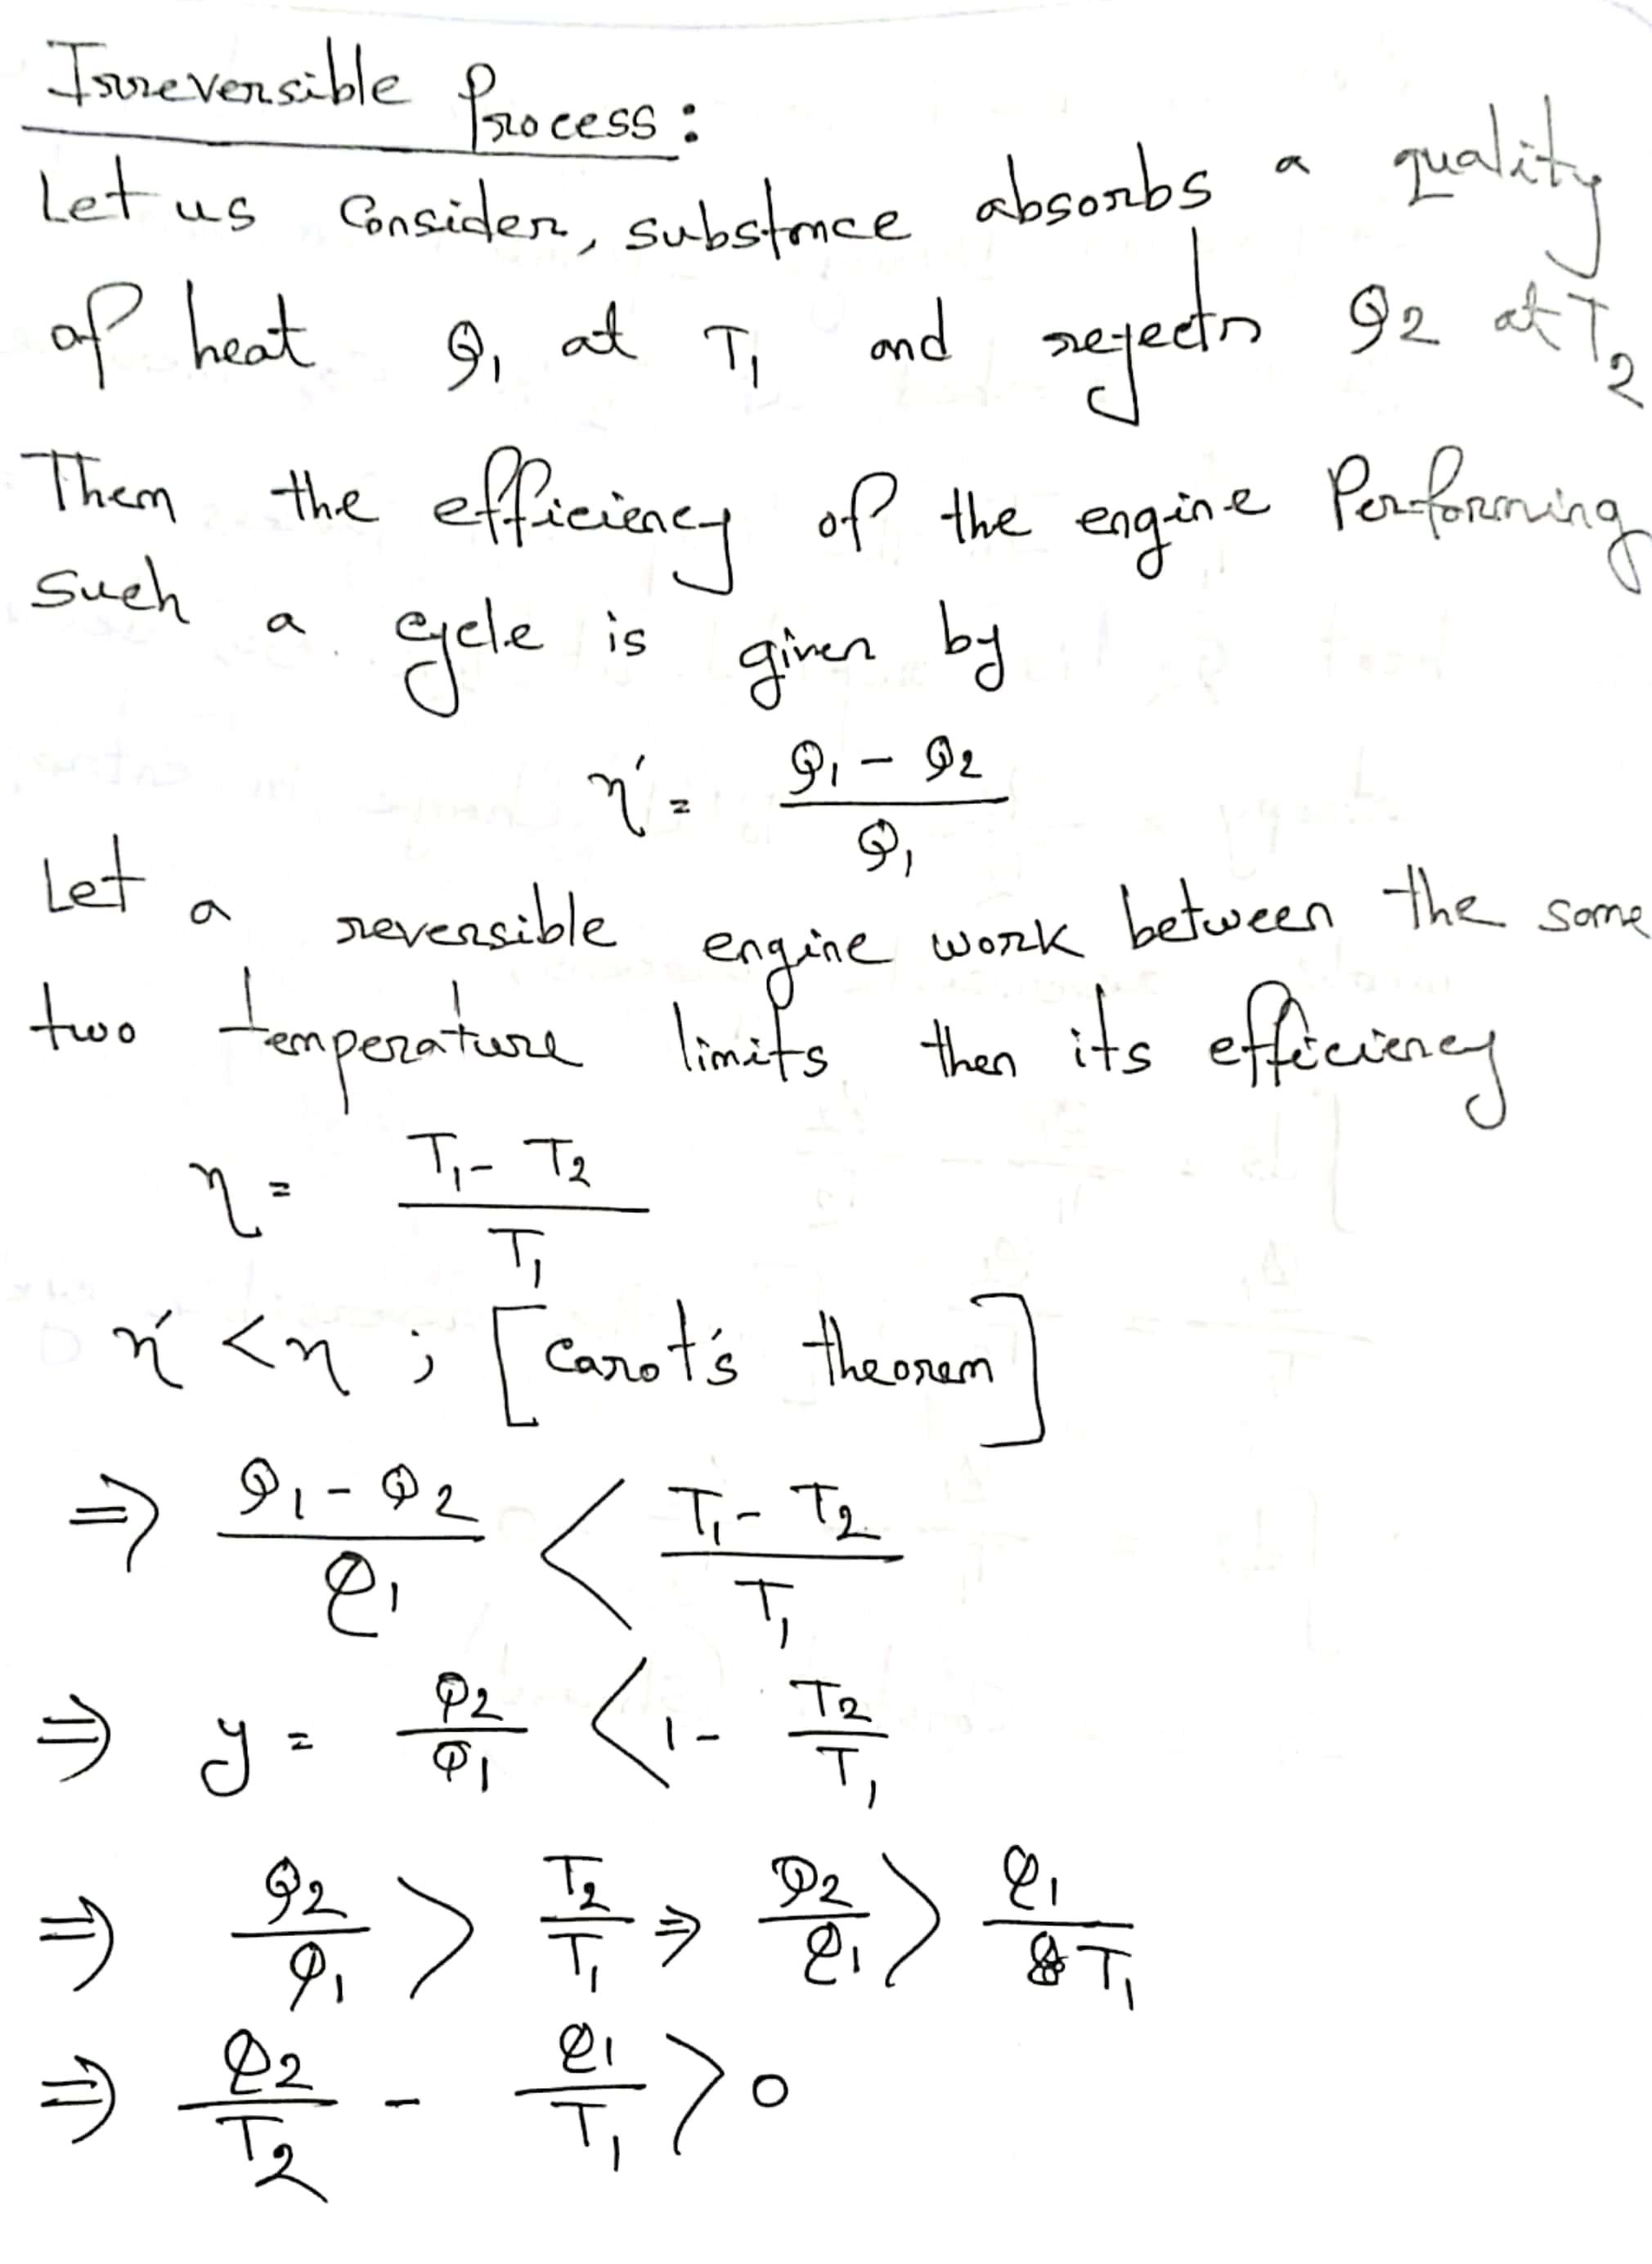 Irreversible Process:
Let us Consider, substance absorbs a quality
of heat Q₁ at T₁ and rejects Q2 at T₂
Then the efficiency of the engine Performing
such a cycle is given by
η′ = (Q₁ - Q₂) / Q₁
Let a reversible engine work between the same
two temperature limits then its efficiency
η = (T₁ - T₂) / T₁
η′ < η ; [Carot's theorem]
⇒ (Q₁ - Q₂) / Q₁ < (T₁ - T₂) / T₁
⇒ y = Q₂/Q₁ < 1 - T₂/T₁
⇒ Q₂/Q₁ > T₂/T₁ ⇒ Q₂/Q₁ > Q₁/T₁
⇒ Q₂/T₂ - Q₁/T₁ > 0